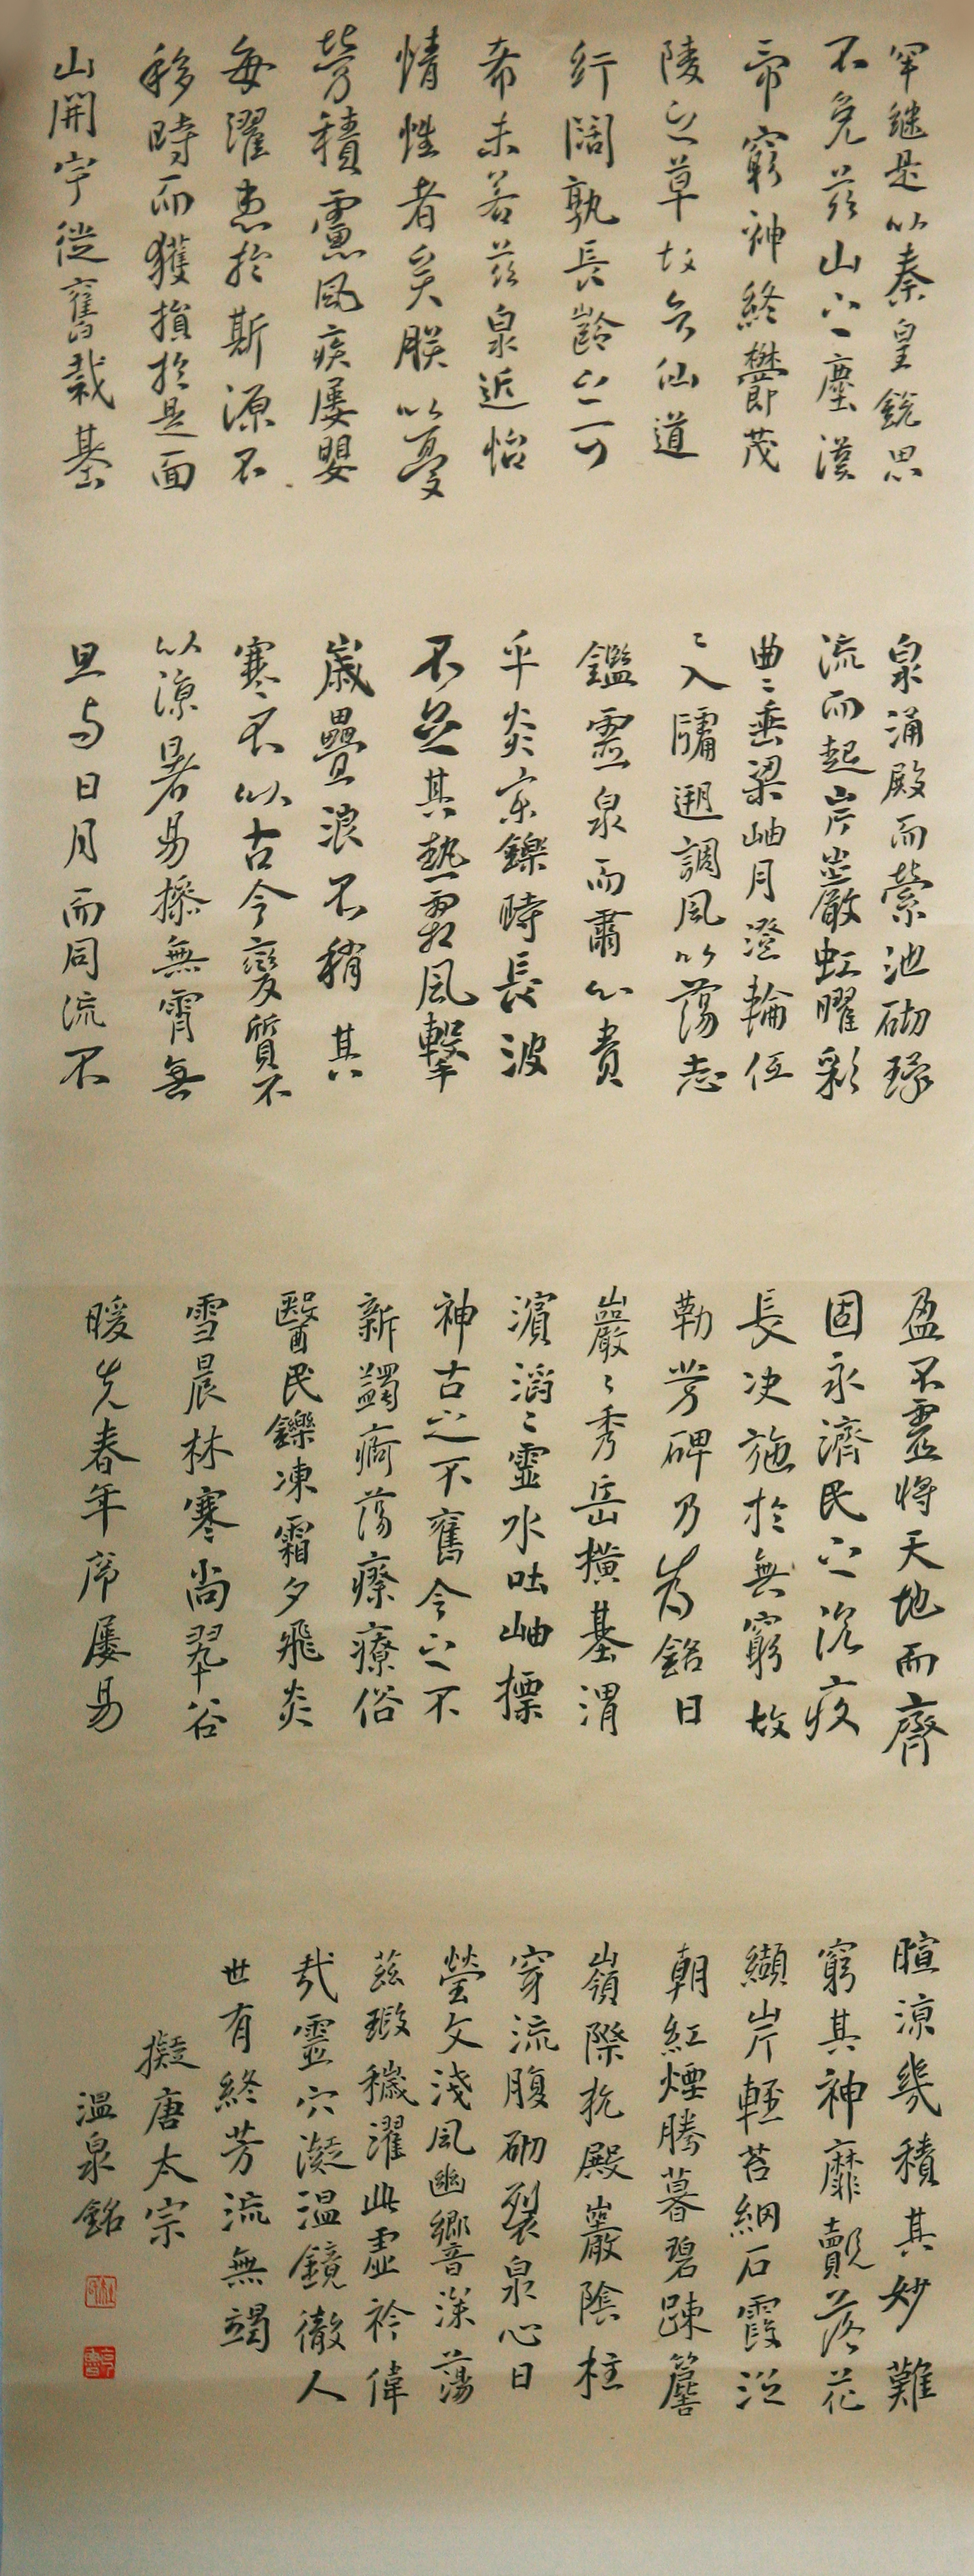 罕继是以秦皇銳思
不免茲山之塵漢
帝窮神終鬱茂
陵之草故知仙道
紆闊孰長齡之可
希未若茲泉近怡
情性者矣朕以憂
勞積慮風疾屢嬰
每濯患於斯源不
移時而獲損於是面
山開宇從舊裁基
泉涌殿而縈池砌環
流而起岸巖虹曜彩
曲曲垂梁岫月澄輪伍
伍入牖遡調風以蕩志
鑑靈泉而肅心賁
乎炎京鑠時長波
不足其熱霜風擊
歲疊浪不稍其
寒不以古今變質不
以涼暑易操無霄無
旦与日月而同流不
盈不虛將天地而齊
固永濟民之沉疾
長決施於無窮故
勒芳碑乃為銘曰
巖巖秀岳橫基渭
濱滔滔靈水吐岫標
神古之不舊今之不
新蠲痾蕩瘵療俗
醫民鑠凍霜夕飛炎
雪晨林寒尚翠谷
暖先春年序屢易
暄涼幾積其妙難
窮其神靡覿落花
纈岸輕苔網石霞泛
朝紅煙騰暮碧疎簷
嶺際抗殿巖陰柱
穿流腹砌裂泉心日
瑩文淺風幽響深蕩
茲瑕穢濯此虛衿偉
哉靈穴凝温鏡徹人
世有終芳流無竭
擬唐太宗
温泉銘